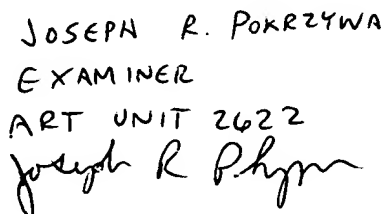 JOSEPH R. POKRZYWA
EXAMINER
ART UNIT 2622
Joseph R P